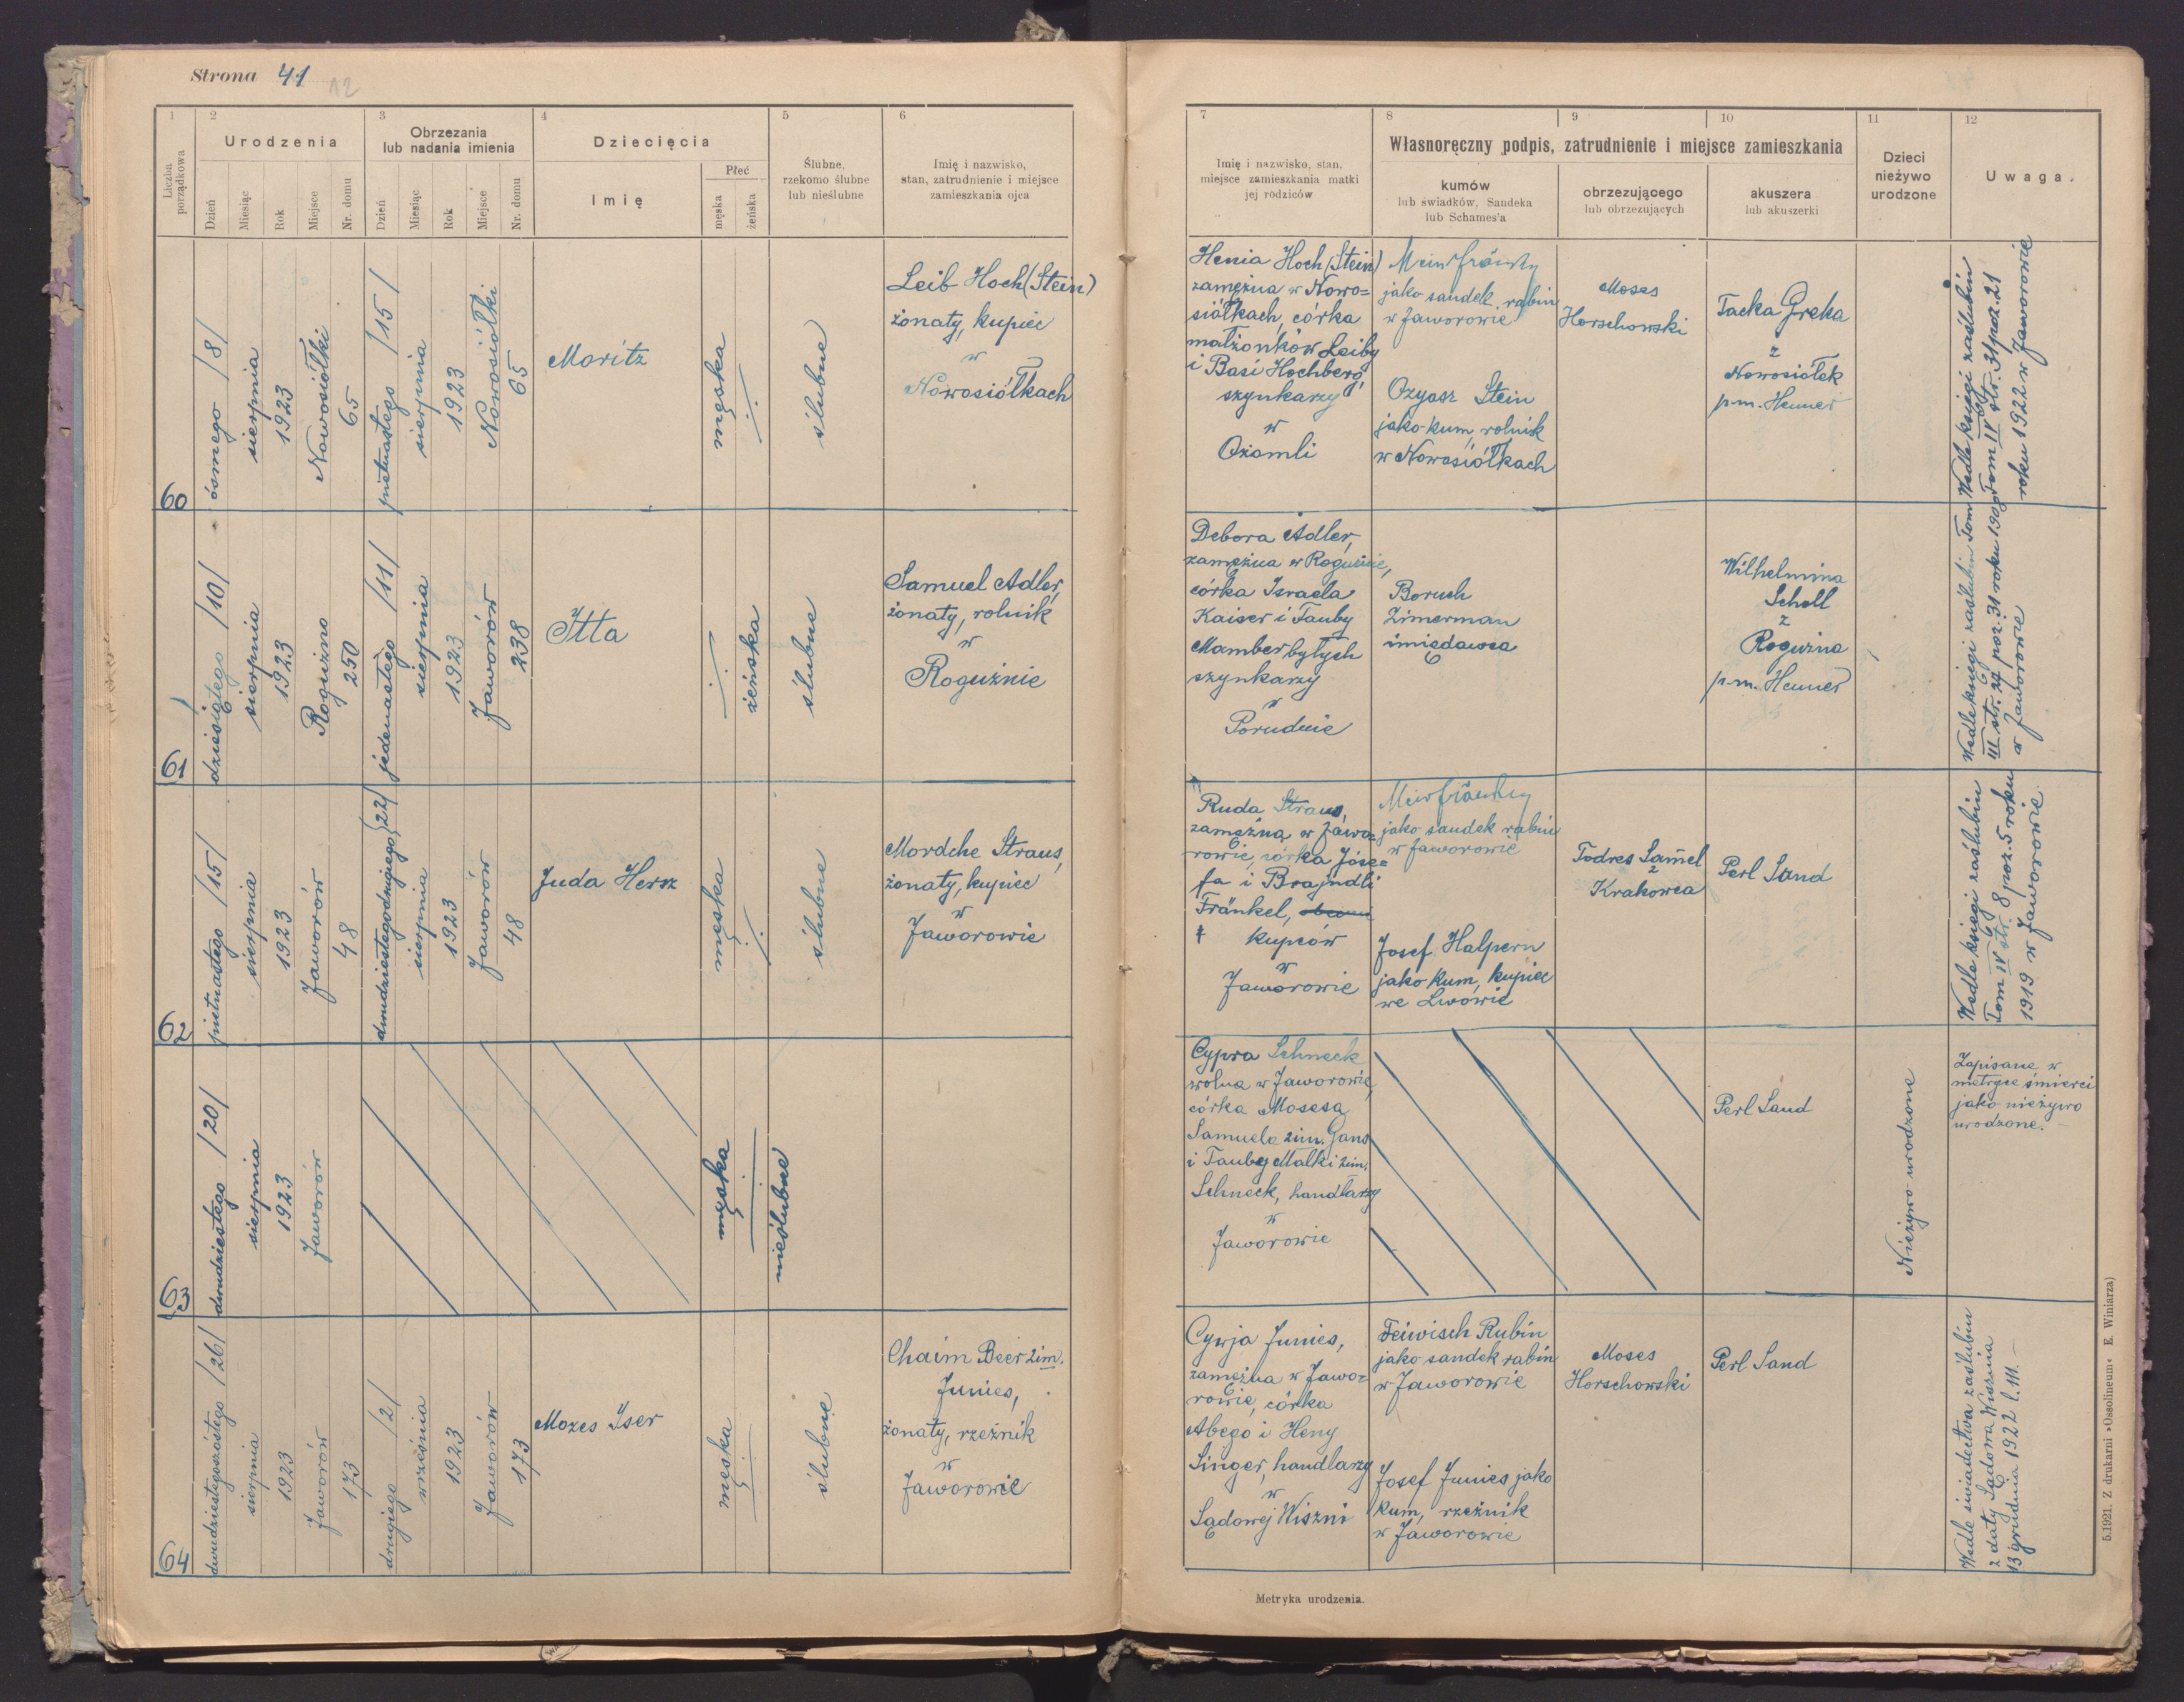 Strona 41
12
1
2
3
4
5
6
Liczba
porządkowa
Urodzenia
Obrzezania
lub nadania imienia
Dziecięcia
Ślubne,
rzekomo ślubne
lub nieślubne
Imię i nazwisko,
stan, zatrudnienie i miejsce
zamieszkania ojca
Dzień
Miesiąc
Rok
Miejsce
Nr. domu
Dzień
Miesiąc
Rok
Miejsce
Nr. domu
Imię
Płeć
męska
żeńska
7
8
9
10
11
12
Imię i nazwisko, stan,
miejsce zamieszkania matki
jej rodziców
Własnoręczny podpis, zatrudnienie i miejsce zamieszkania
kumów
lub świadków, Sandeka
lub Schames'a
obrzezującego
lub obrzezujących
akuszera
lub akuszerki
Dzieci
nieżywo
urodzone
Uwaga.
60
ósmego /8/
sierpnia
1923
Nowosiółki
65
piętnastego /15/
sierpnia
1923
Nowosiółki
65
Moritz
męska
ślubne
Leib Hoch (Stein)
żonaty, kupiec
w
Nowosiółkach
Henia Hoch (Stein)
zamężna w Nowo=
siółkach, córka
małżonków Leiby
i Basi Hochberg
szynkarzy
w
Ożomli
jako sandek, rabin
w Jaworowie
Ozyasz Stein
jako kum, rolnik
w Nowosiółkach
Moses
Horschowski
Tacka Greka
z
Nowosiółek
p.m. Hemer
Wedle księgi zaślubin
Tom IV str. 31 poz. 21
roku 1922 w Jaworowie
61
dziesiątego /10/
sierpnia
1923
Roguźno
250
jedenastego /11/
sierpnia
1923
Jaworów
238
Itta
żeńska
ślubne
Samuel Adler,
żonaty, rolnik
w
Roguźnie
Debora Adler,
zamężna w Roguźnie,
córka Israela
Kaiser i Tauby
Mamber byłych
szynkarzy
w
Porudnie
Boruch
Zimerman
imiędawca
Wilhelmina
Scholl
z
Roguźna
p.m. Hemer
Wedle księgi zaślubin Tom
III str. 24 poz. 31 roku 1909
w Jaworowie
62
piętnastego /15/
sierpnia
1923
Jaworów
48
dwudziestegodrugiego /22/
sierpnia
1923
Jaworów
48
Juda Hersz
męska
ślubne
Mordche Straus,
żonaty, kupiec
w
Jaworowie
Ruda Straus,
zamężna w Jawo=
rowie, córka Józe=
fa i Brajndli
Fränkel,
kupców
w
Jaworowie
jako sandek rabin
w Jaworowie
Josef Halpern
jako kum, kupiec
we Lwowie
Todres Samel
z
Krakowca
Perl Sand
Wedle księgi zaślubin
Tom IV str. 8 poz. 5 roku
1919 w Jaworowie.
63
dwudziestego /20/
sierpnia
1923
Jaworów
męska
nieślubne
Cypra Schneck
wolna w Jaworowie,
córka Mosesa
Samuela 2im. Gans
i Tauby Malki 2im.
Schneck, handlarzy
w
Jaworowie
Perl Sand
Nieżywo urodzone
Zapisane w
metryce śmierci
jako nieżywo
urodzone.
64
dwudziestegoszóstego /26/
sierpnia
1923
Jaworów
173
drugiego /2/
września
1923
Jaworów
173
Mozes Iser
męska
ślubne
Chaim Beer 2im.
Junies,
żonaty, rzeźnik
w
Jaworowie
Cywja Junies,
zamężna w Jawo=
rowie, córka
Abego i Heny
Singer, handlarzy
w
Sądowej Wiszni
Feiwisch Rubin
jako sandek rabin
w Jaworowie
Josef Junies jako
kum, rzeźnik
w Jaworowie
Moses
Horschowski
Perl Sand
Wedle świadectwa zaślubin
z daty Sądowa Wisznia
13 grudnia 1922 l. 111.
Metryka urodzenia.
5.1921. Z drukarni »Ossolineum« E. Winiarza)